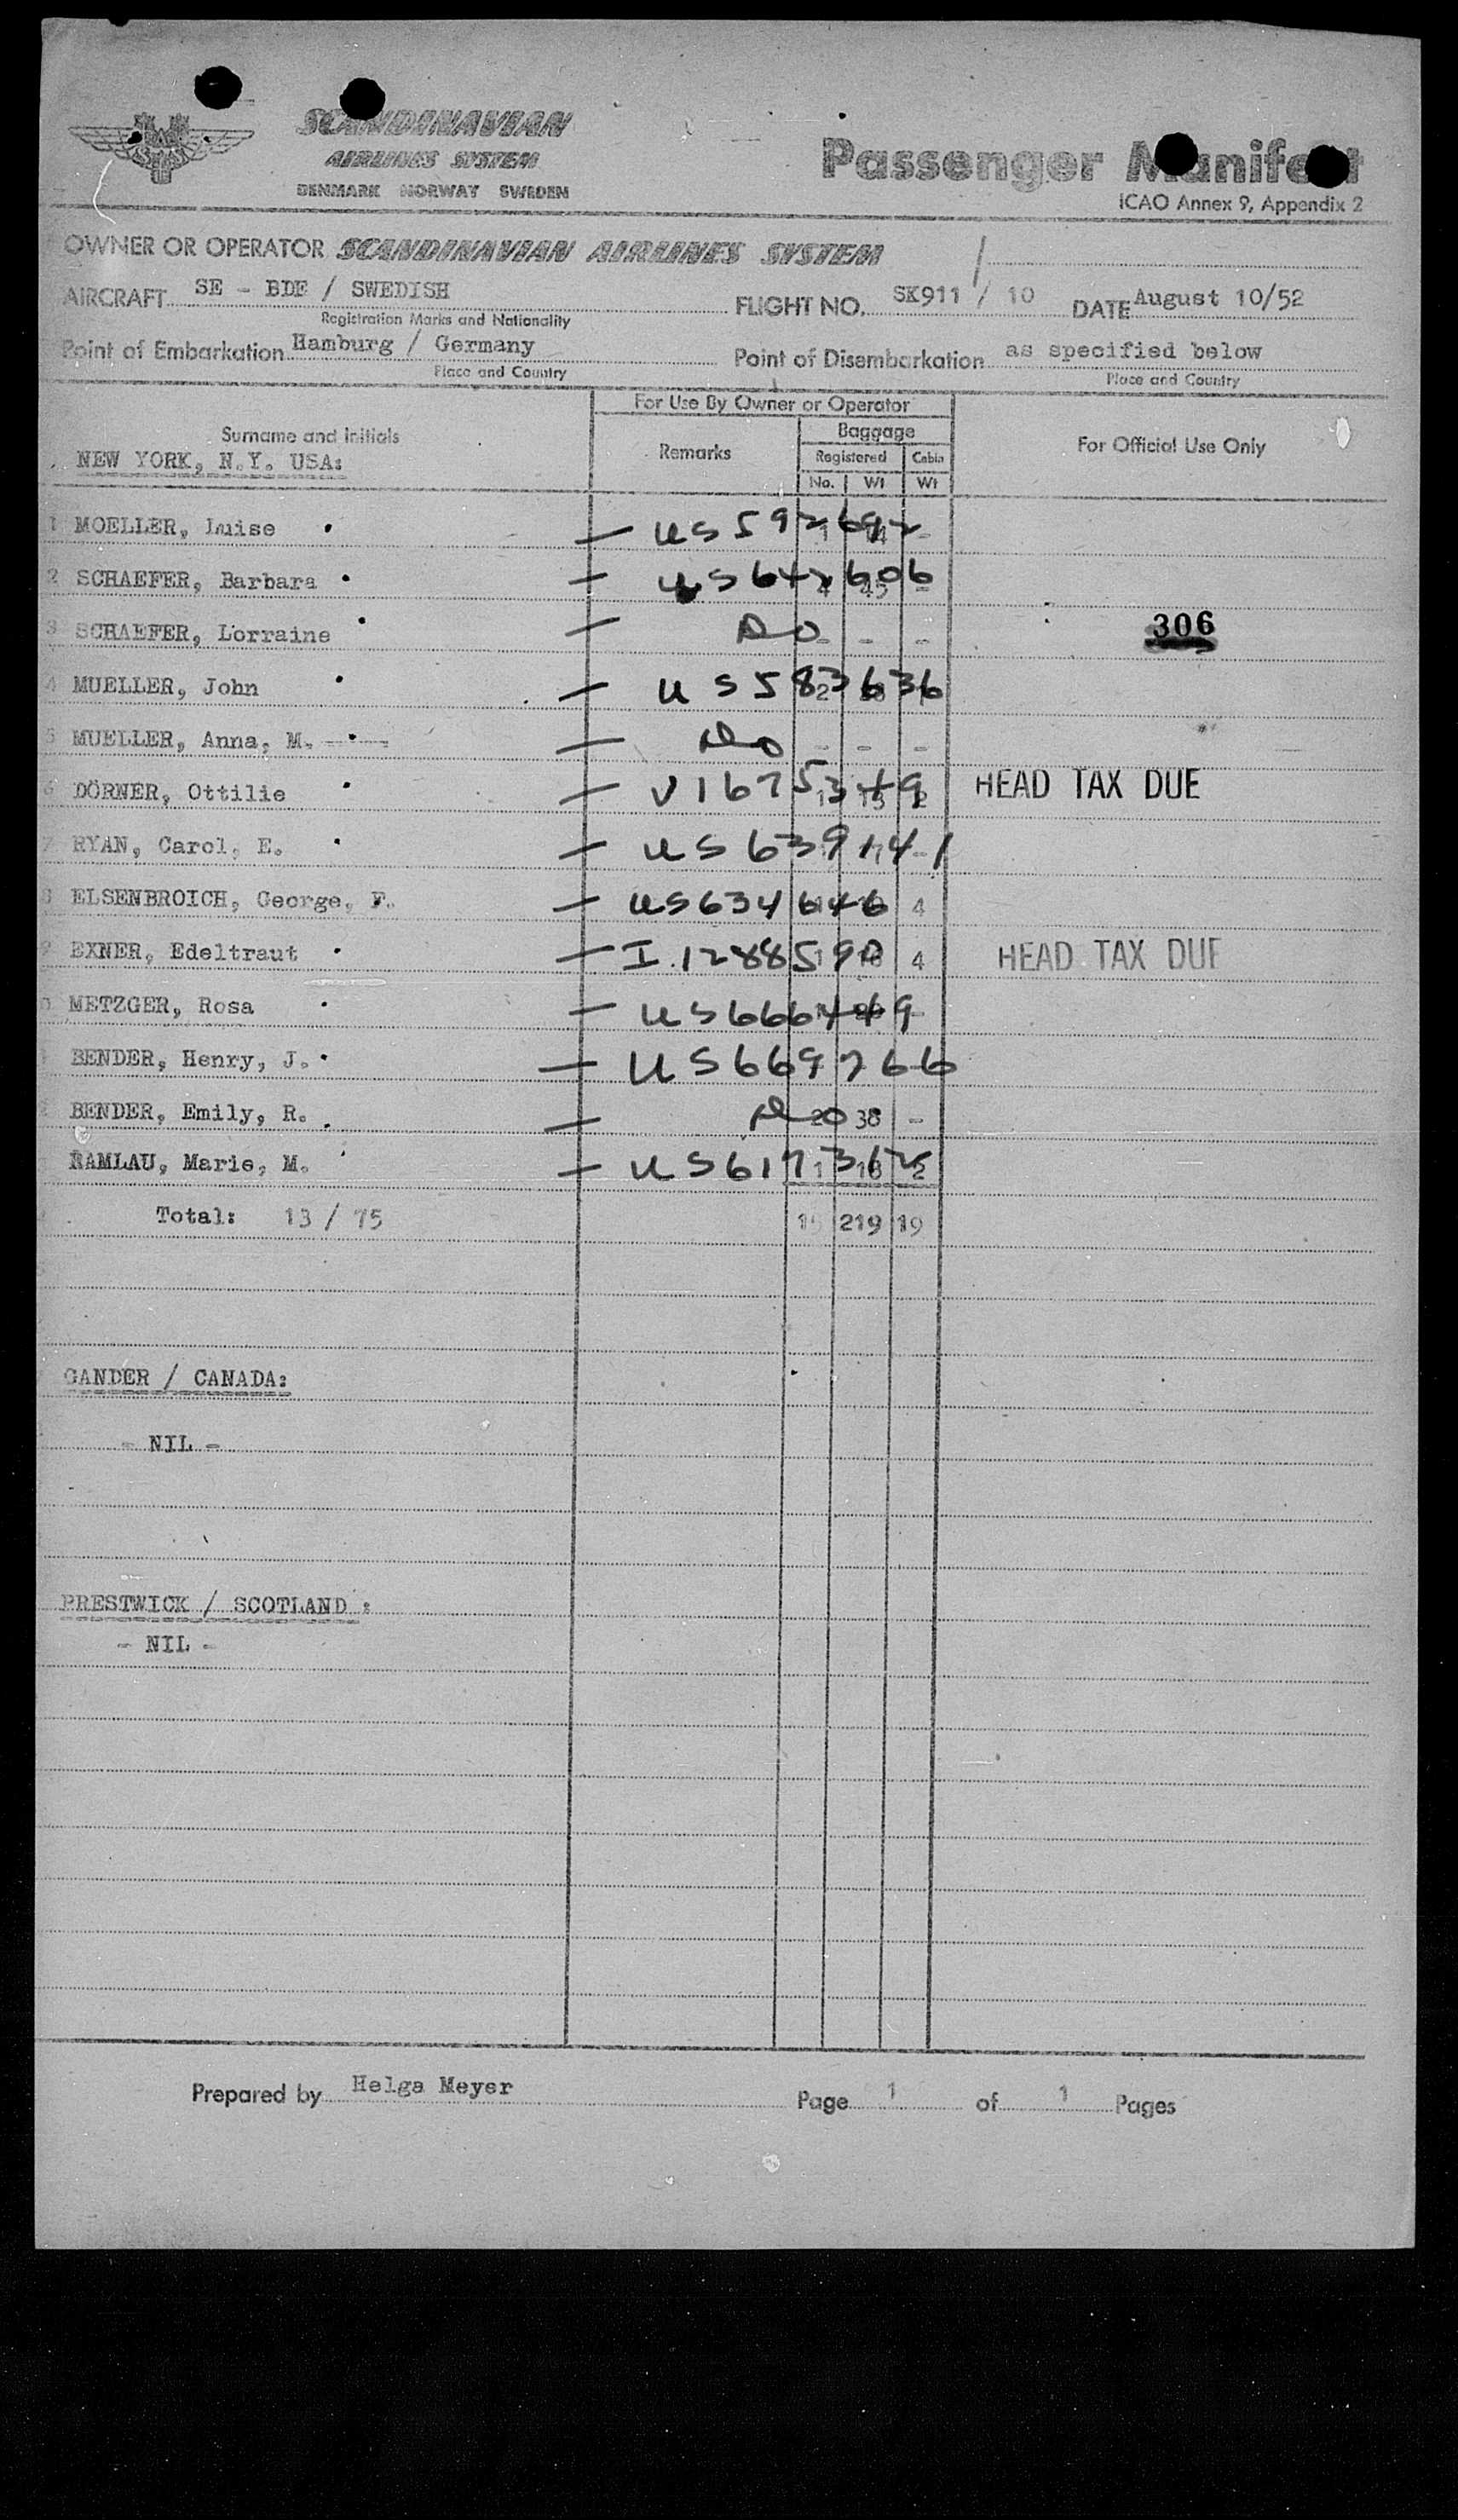 SCANDINAVIAN
AIRLINES SYSTEM
DENMARK NORWAY SWEDEN
Passenger Manifest
ICAO Annex 9, Appendix 2
OWNER OR OPERATOR SCANDINAVIAN AIRLINES SYSTEM
AIRCRAFT SE - BDE / SWEDISH FLIGHT NO. SK911 / 10 DATE August 10/52
Registration Marks and Nationality
Point of Embarkation Hamburg / Germany Point of Disembarkation as specified below
Place and Country Place and Country
For Use By Owner or Operator
Surname and Initials Remarks Baggage For Official Use Only
Registered Cabin
No. Wt Wt
NEW YORK, N.Y. USA:
1 MOELLER, Luise — US 592692
2 SCHAEFER, Barbara — US 642606
3 SCHAEFER, Lorraine — Do - - - 306
4 MUELLER, John — US 583636
5 MUELLER, Anna, M. — Do - - -
6 DÖRNER, Ottilie — V1675349 HEAD TAX DUE
7 RYAN, Carol, E. — US 639141
8 ELSENBROICH, George, F. — US634646 4
9 EXNER, Edeltraut — I.1288590 4 HEAD TAX DUE
METZGER, Rosa — US666449
BENDER, Henry, J. — US669266
BENDER, Emily, R. — Do 20 38 -
RAMLAU, Marie, M. — US617362
Total: 13 / 75 15 219 19
GANDER / CANADA:
- NIL -
PRESTWICK / SCOTLAND :
- NIL -
Prepared by Helga Meyer Page 1 of 1 Pages